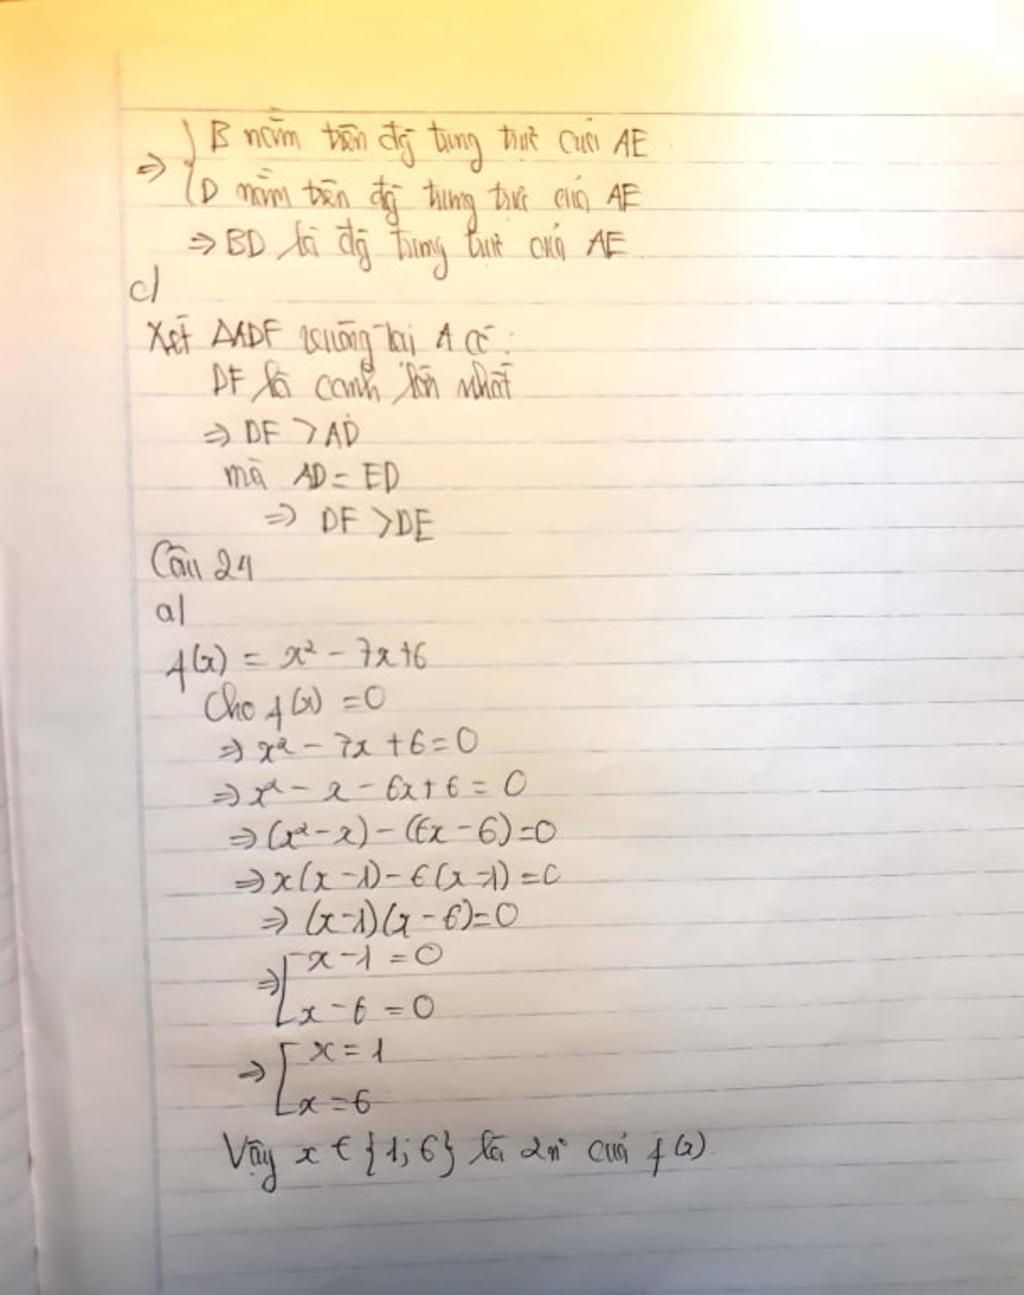 ⇒ { B nằm trên đg trung trực của AE
D nằm trên đg trung trực của AE
⇒ BD là đg trung trực của AE
c)
Xét ΔADF vuông tại A có:
DF là cạnh lớn nhất
⇒ DF > AD
mà AD = ED
⇒ DF > DE
Câu 24
a)
f(x) = x² - 7x + 6
Cho f(x) = 0
⇒ x² - 7x + 6 = 0
⇒ x² - x - 6x + 6 = 0
⇒ (x² - x) - (6x - 6) = 0
⇒ x(x - 1) - 6(x - 1) = 0
⇒ (x - 1)(x - 6) = 0
⇒ [ x - 1 = 0
x - 6 = 0
⇒ [ x = 1
x = 6
Vậy x ∈ {1; 6} là 2 nº của f(x).